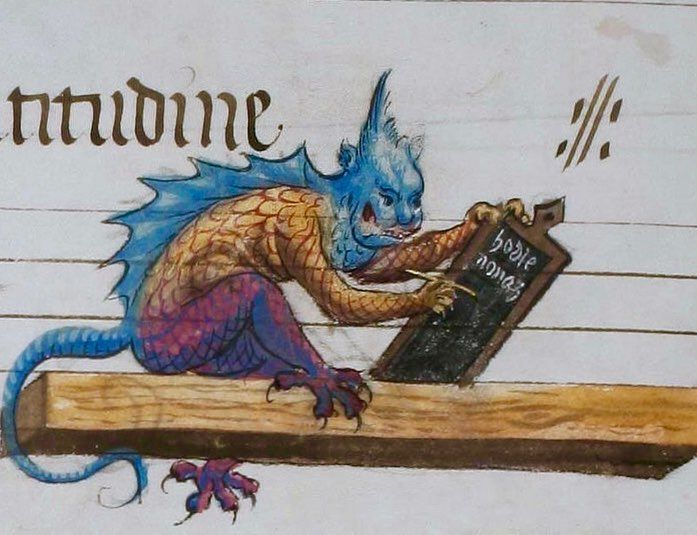 titudine
hodie
nonas